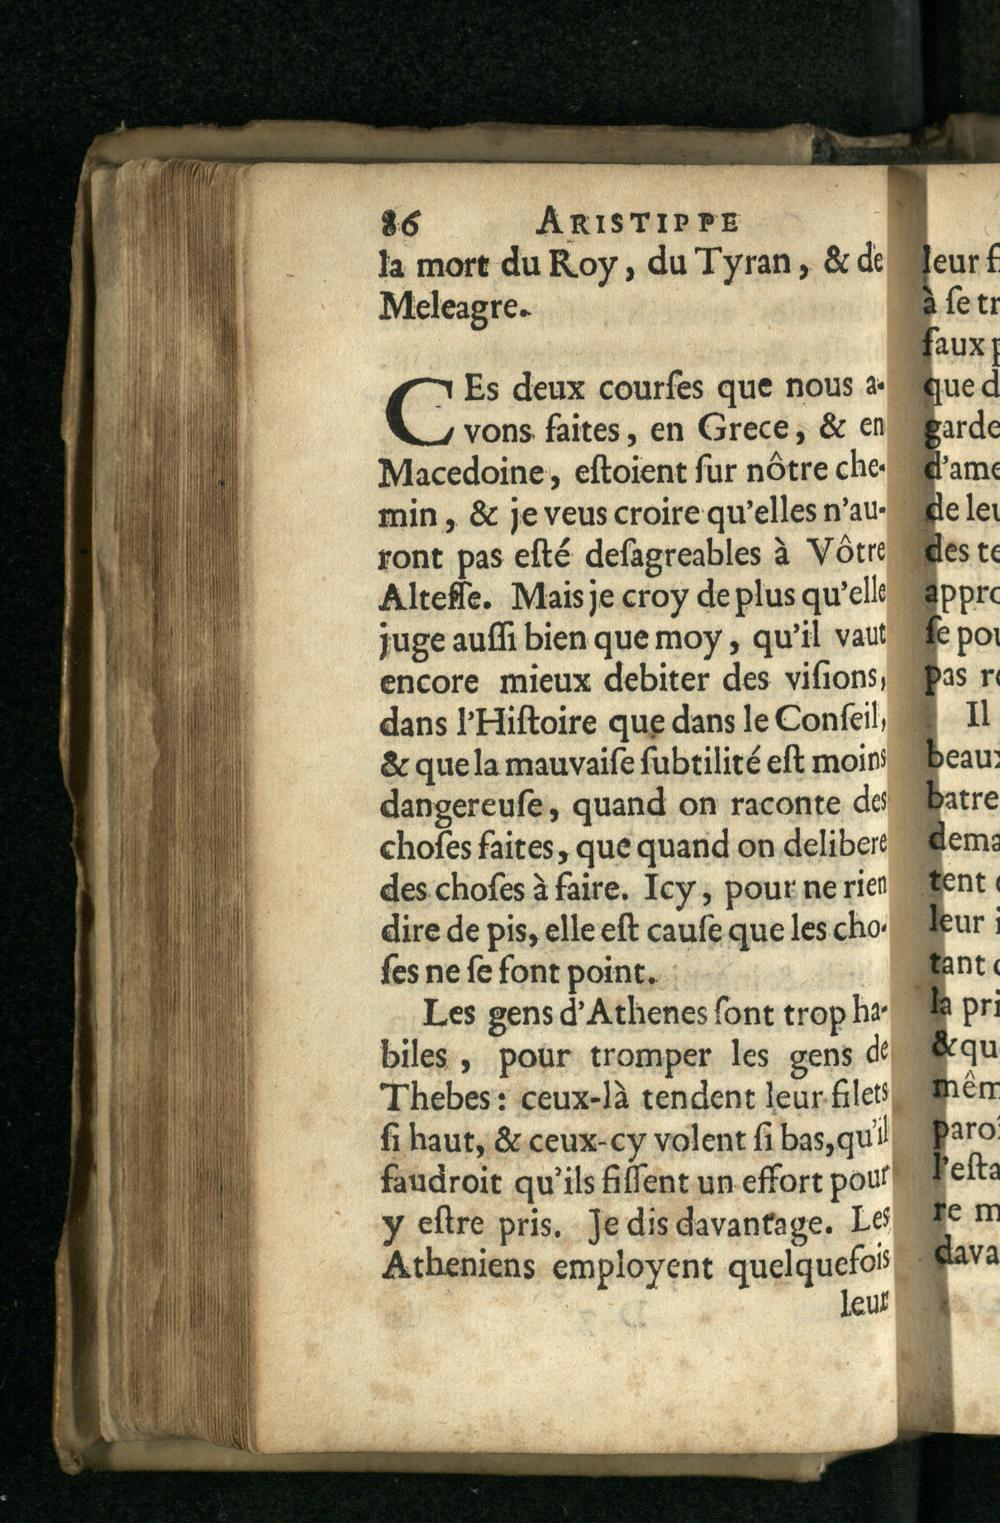 86 ARISTIPPE
la mort du Roy, du Tyran, & de
Meleagre.
CEs deux courſes que nous a-
vons faites, en Grece, & en
Macedoine, eſtoient ſur nôtre che-
min, & je veus croire qu'elles n'au-
ront pas eſté deſagreables à Vôtre
Alteſſe. Mais je croy de plus qu'elle
juge auſſi bien que moy, qu'il vaut
encore mieux debiter des viſions,
dans l'Hiſtoire que dans le Conſeil,
& que la mauvaiſe ſubtilité eſt moins
dangereuſe, quand on raconte des
choſes faites, que quand on delibere
des choſes à faire. Icy, pour ne rien
dire de pis, elle eſt cauſe que les cho-
ſes ne ſe font point.
Les gens d'Athenes ſont trop ha-
biles, pour tromper les gens de
Thebes: ceux-là tendent leur filets
ſi haut, & ceux-cy volent ſi bas, qu'il
faudroit qu'ils fiſſent un effort pour
y eſtre pris. Je dis davantage. Les
Atheniens employent quelquefois
leur
leur
à ſe
que
garde
d'ame
de
des
pas
Il
tent
leur
tant
la
&
re